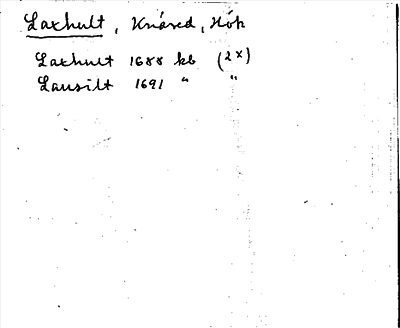 Laxhult, Knäred, Hök
Laxhult 1688 kb (2x)
Lausilt 1691 " "